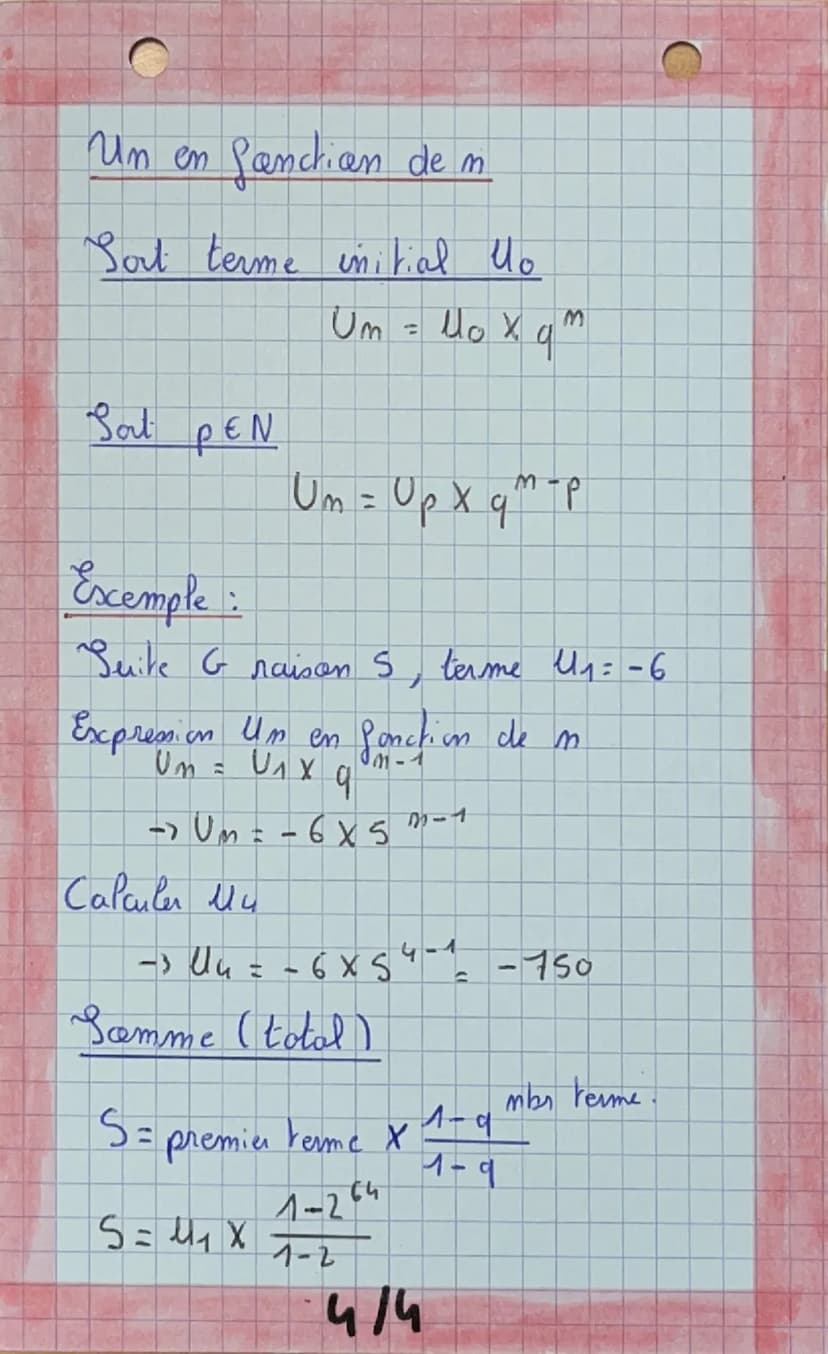 Un en fonction de n
Soit terme initial U0
Un = U0 × q^n
Soit p ∈ N
Un = Up × q^n-p
Exemple :
Suite G raison 5, terme U1 = -6
Expression Un en fonction de n
Un = U1 × q^n-1
→ Un = -6 × 5^n-1
Calculer U4
→ U4 = -6 × 5^4-1 = -750
Somme (total)
S = premier terme × (1-q^nbr terme.)/(1-q)
S = U1 × (1-2^64)/(1-2)
4/4